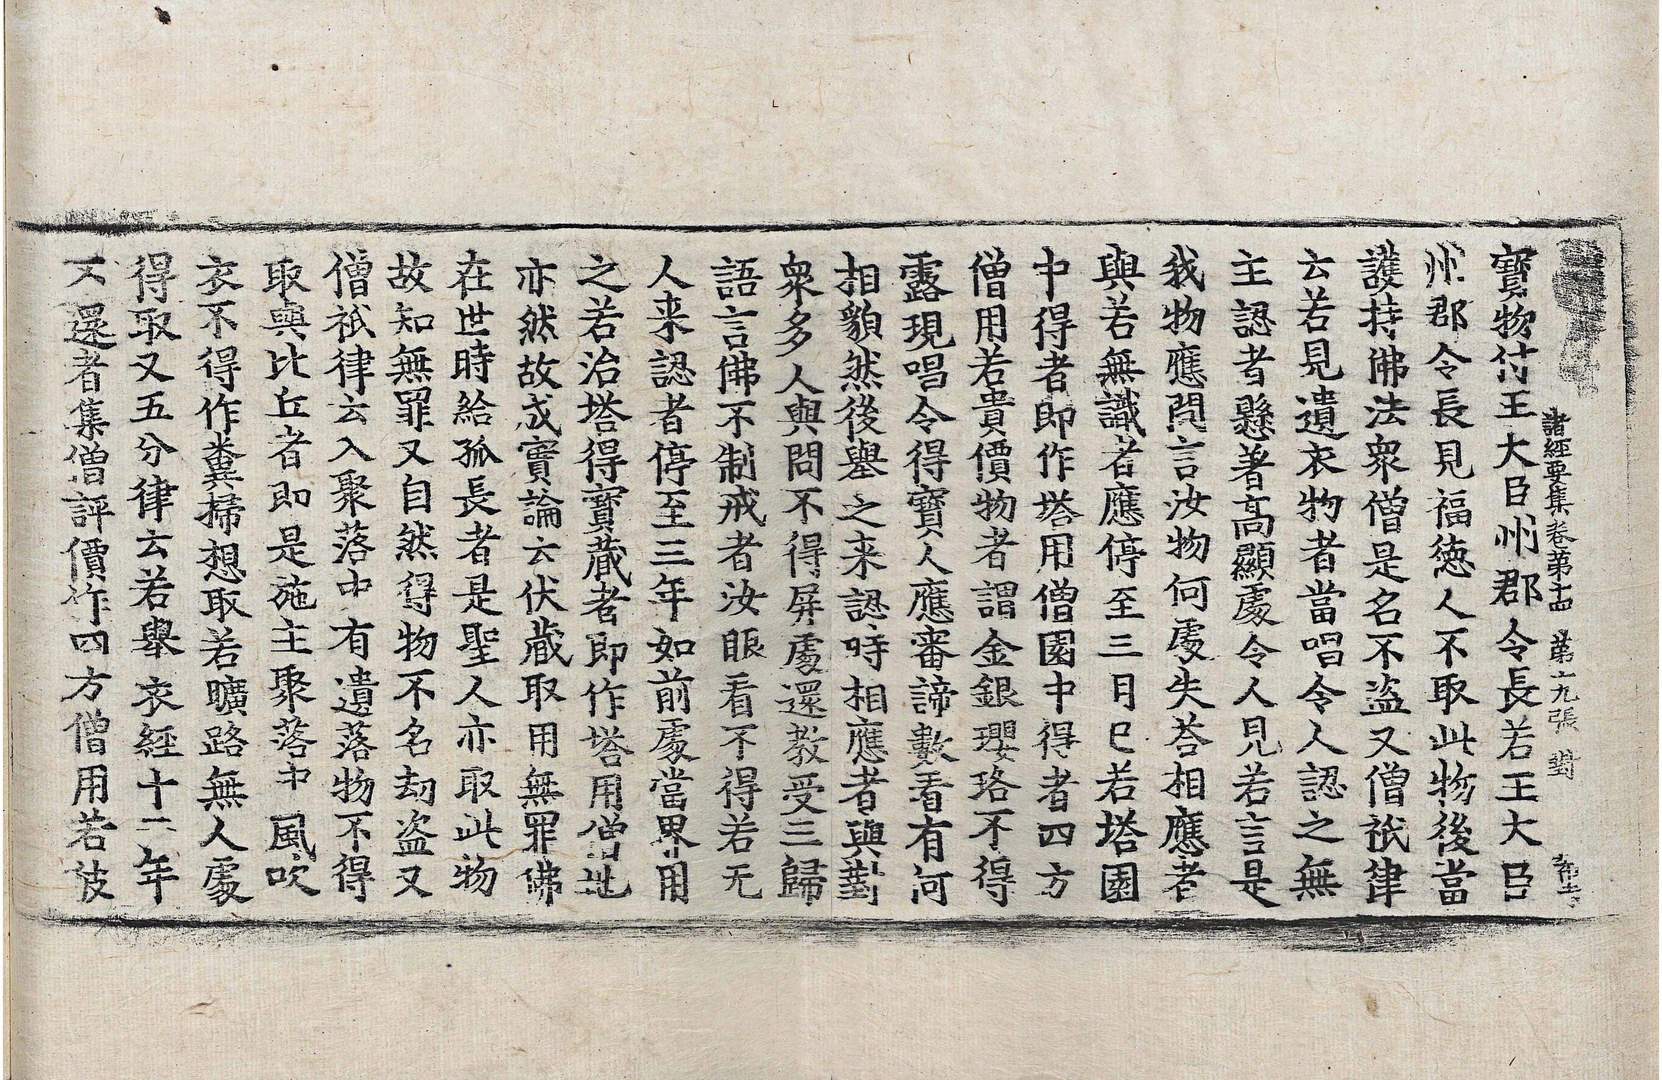 諸經要集卷第十四 第十九張 對
寶物付王大臣州郡令長若王大臣
州郡令長見福德人不取此物後當
護持佛法衆僧是名不盜又僧祇律
云若見遺衣物者當唱令人認之無
主認者懸著高顯處令人見若言是
我物應問言汝物何處失荅相應者
與若無識者應停至三月已若塔園
中得者即作塔用僧園中得者四方
僧用若貴價物者謂金銀瓔珞不得
露現唱令得寶人應審諦數看有何
相貌然後舉之来認時相應者與對
衆多人與問不得屏處還教受三歸
語言佛不制戒者汝眼看不得若无
人来認者停至三年如前處當界用
之若治塔得寶藏者即作塔用僧地
亦然故成實論云伏藏取用無罪佛
在世時給孤長者是聖人亦取此物
故知無罪又自然得物不名劫盜又
僧祇律云入聚落中有遺落物不得
取與比丘者即是施主聚落中風吹
衣不得作糞掃想取若曠路無人處
得取又五分律云若舉衣經十二年
不還者集僧評價作四方僧用若彼